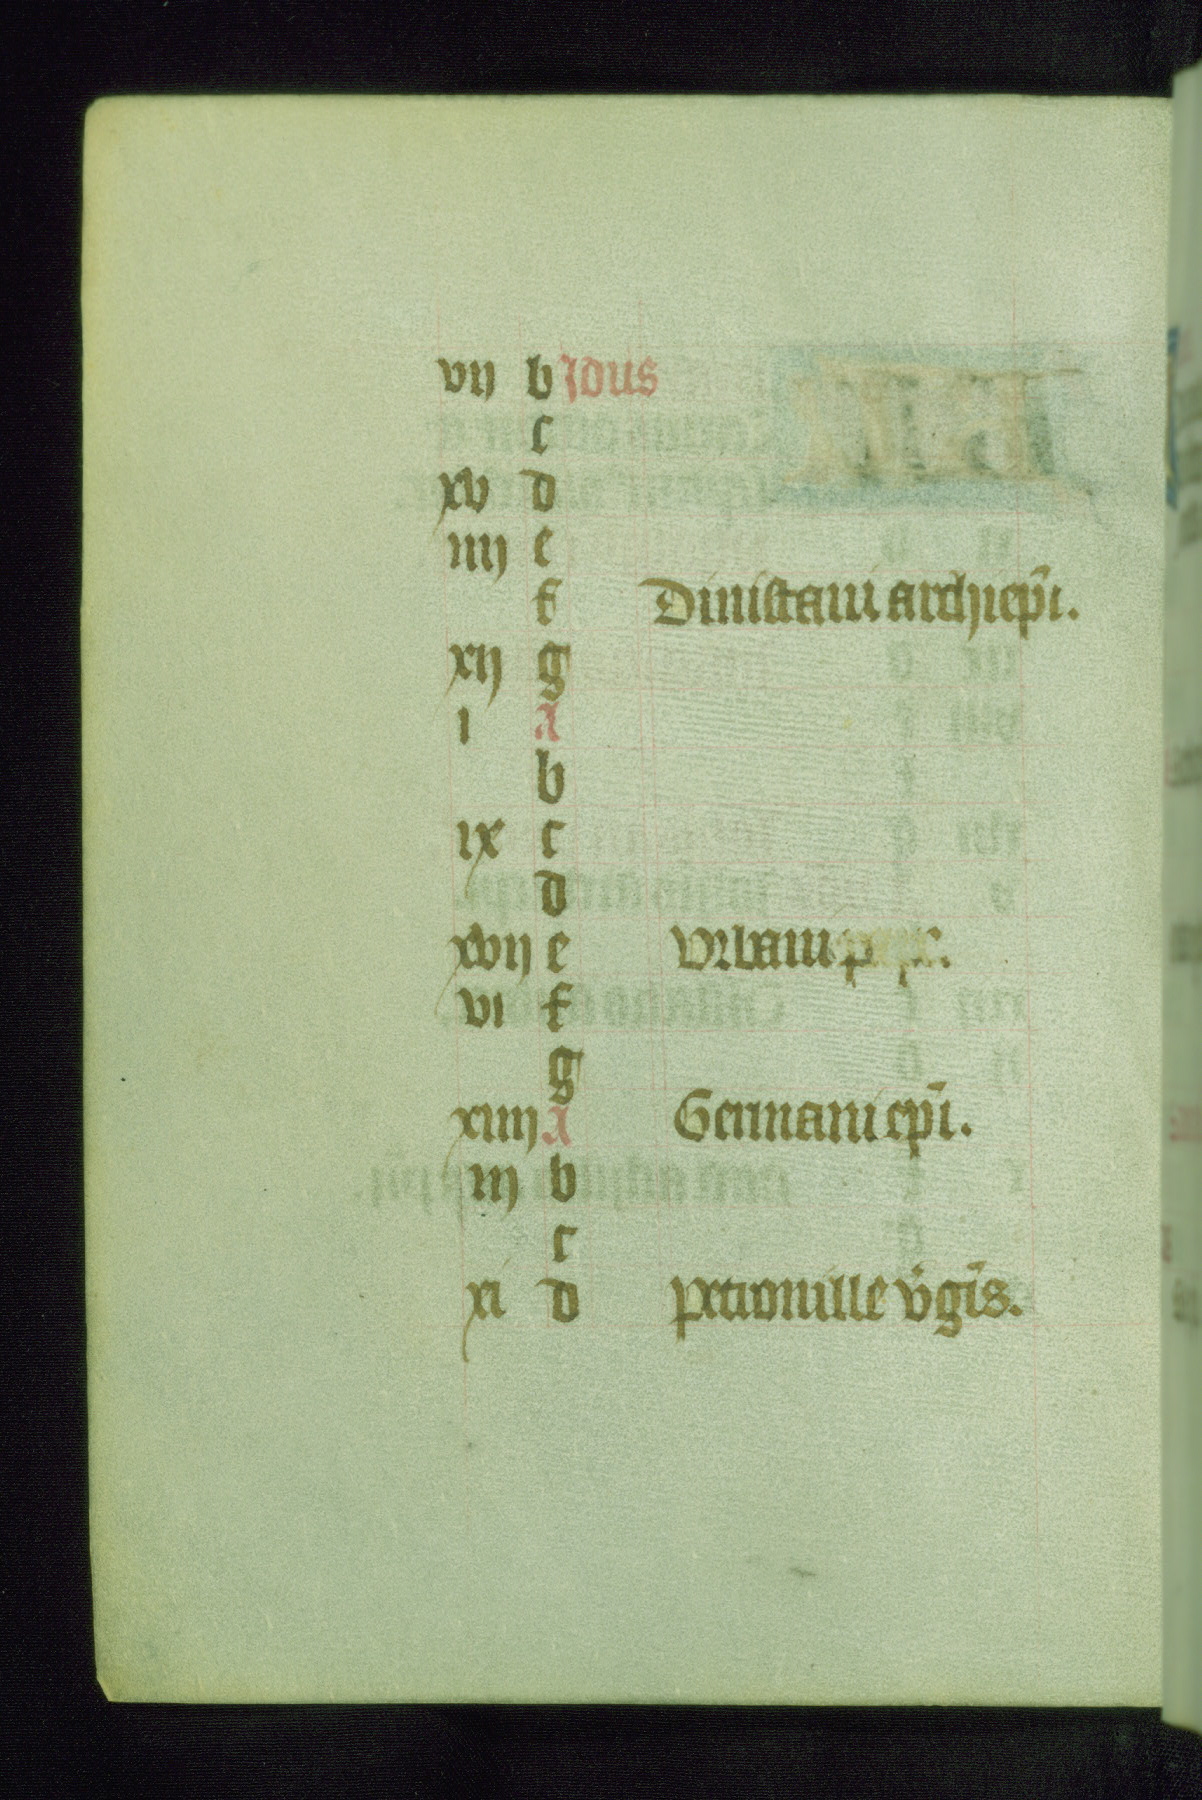 vij b Idus
c
xv d
iiij e
f Dinistani archiep̄i.
xij g
i A
b
ix c
d
xvij e Vrbani pape.
vi f
g
xiiij A Germani ep̄i.
iij b
c
xi d petronille v̄gīs.